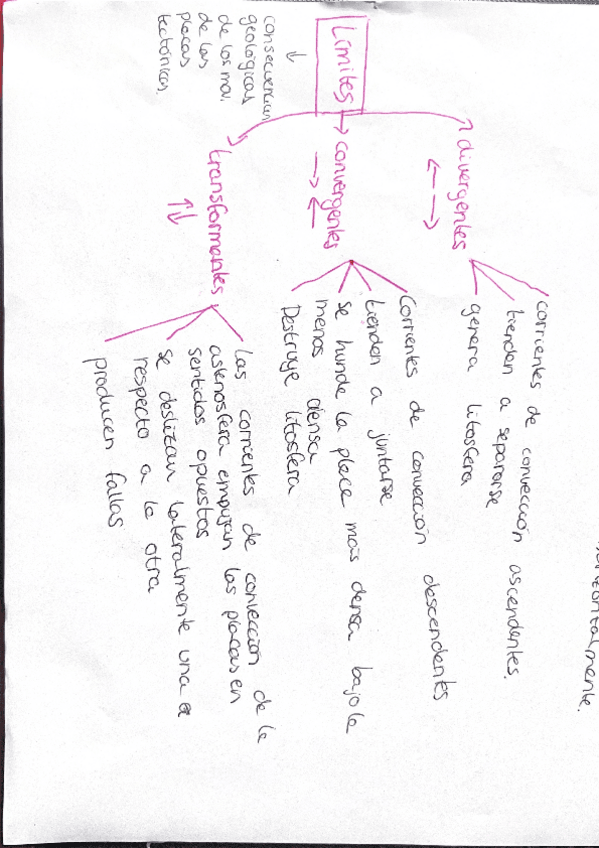 horizontalmente.
Límites
↓
consecuencias
geológicas
de los mov.
de las
placas
tectónicas.
divergentes
← →
corrientes de convección ascendentes.
tienden a separarse
genera litosfera
convergentes
→ ←
Corrientes de convección descendentes
tienden a juntarse
se hunde la placa más densa bajo la
menos densa
Destruye litosfera
transformantes
↑↓
Las corrientes de convección de la
astenosfera empujan las placas en
sentidos opuestos
se deslizan lateralmente una
respecto a la otra
producen fallas